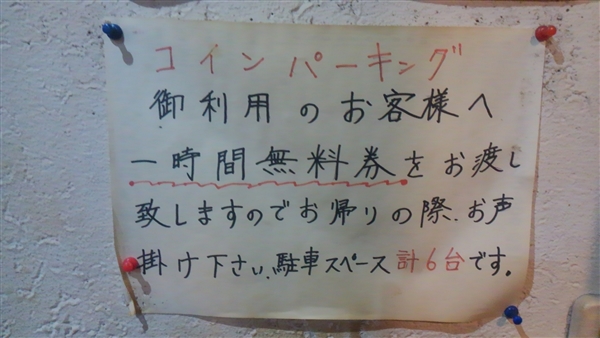 コインパーキング
御利用のお客様へ
一時間無料券をお渡し
致しますのでお帰りの際、お声
掛け下さい、駐車スペース計6台です。